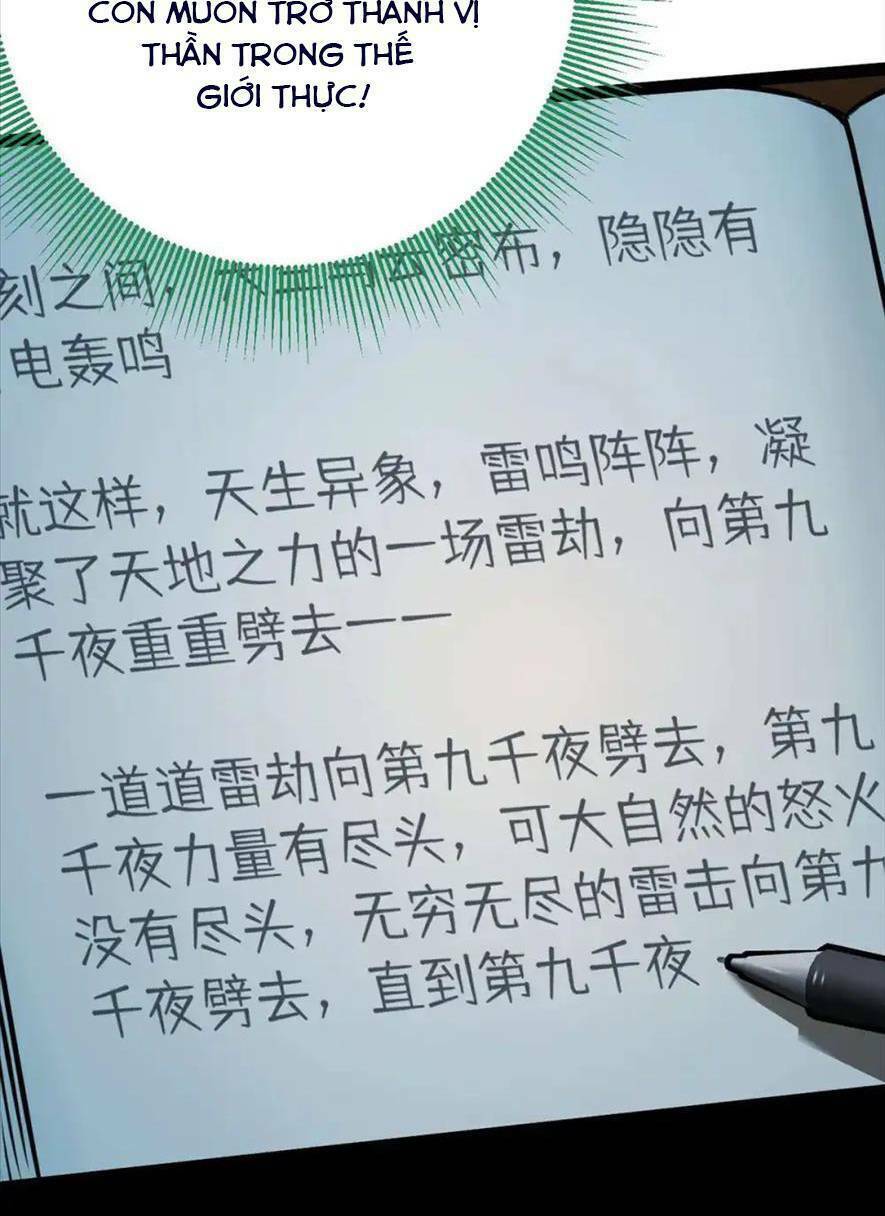 CON MUỐN TRỞ THÀNH VỊ
THẦN TRONG THẾ
GIỚI THỰC!
刻之间，密布，隐隐有
电轰鸣
就这样，天生异象，雷鸣阵阵，凝
聚了天地之力的一场雷劫，向第九
千夜重重劈去——
一道道雷劫向第九千夜劈去，第九
千夜力量有尽头，可大自然的怒火
没有尽头，无穷无尽的雷击向第九
千夜劈去，直到第九千夜